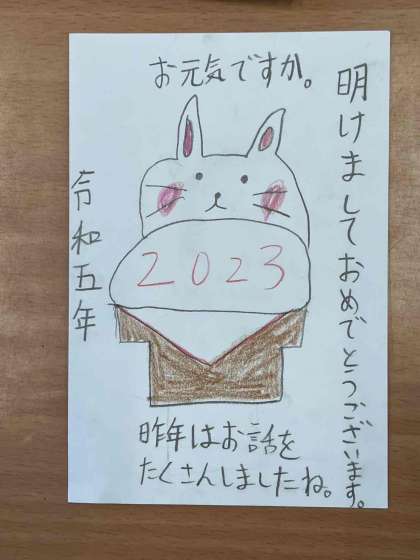 明けましておめでとうございます。
お元気ですか。
2023
令和五年
昨年はお話を
たくさんしましたね。